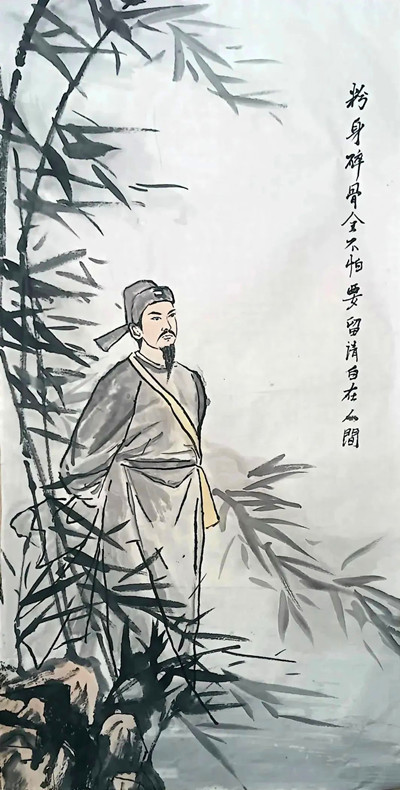 粉身碎骨全不怕要留清白在人間